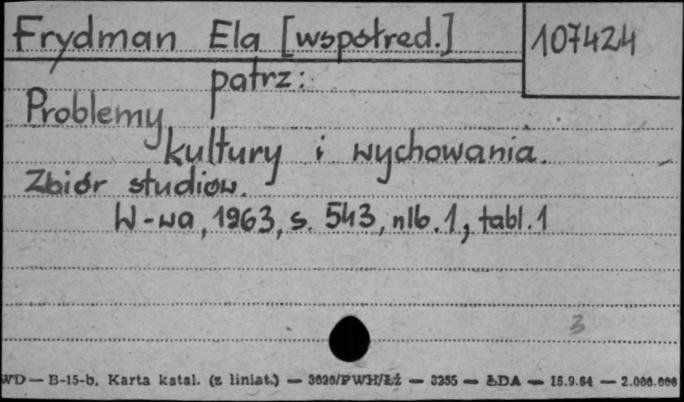 Frydman Ela [współred.]
107424
patrz:
Problemy
kultury i wychowania.
Zbiór studiów.
W-wa, 1963, s. 543, nlb. 1, tabl. 1
3
WD — B-15-b. Karta katal. (z liniat.) — 3020/PWH/Łż — 3255 — ŁDA — 15.9.64 — 2.000.000